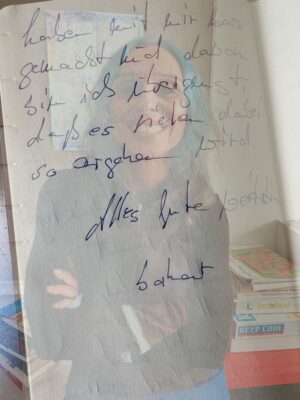 haben mit mir was
gemacht und davon
bin ich überzeugt,
daß es vielen dabei
so ergehen wird.
Alles Gute
KEEP COOL